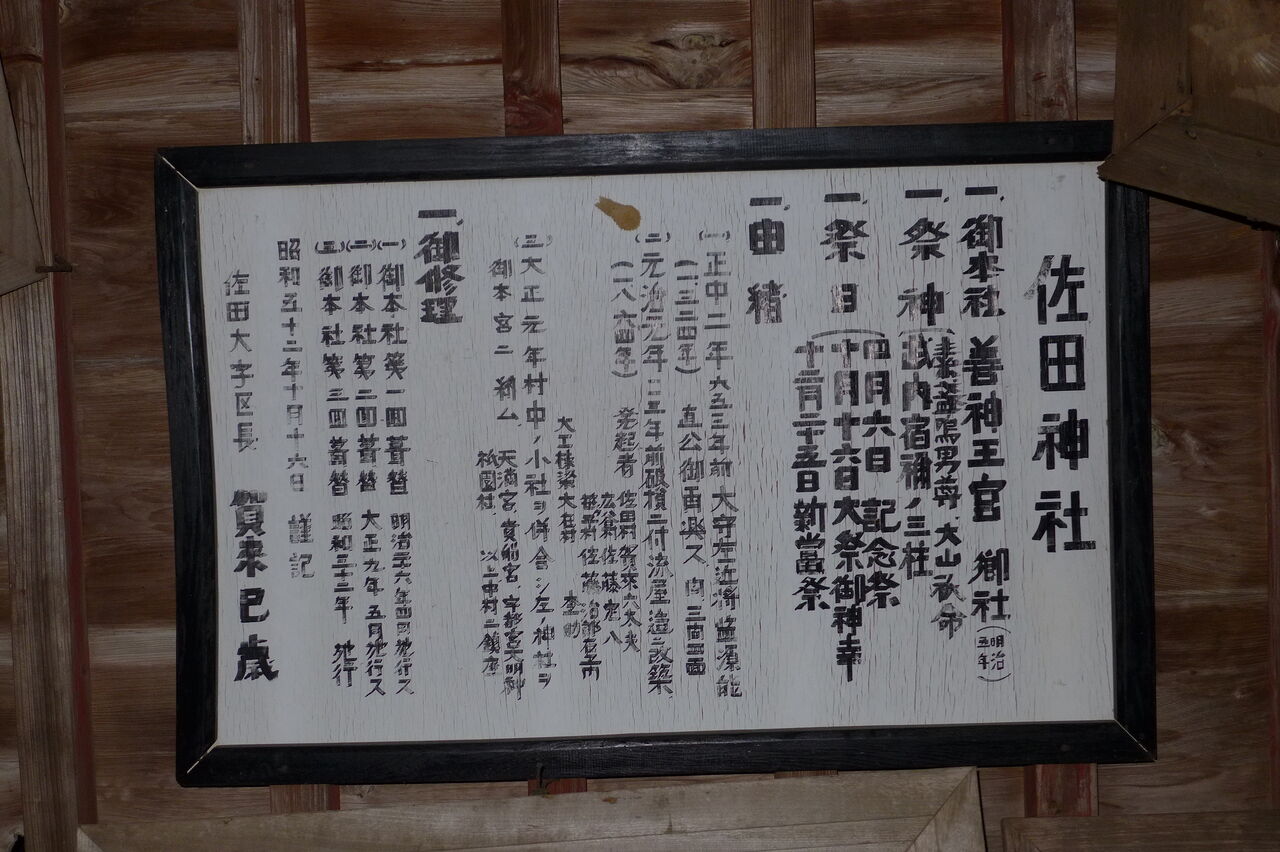 佐田神社
一、御本社 善神王宮 郷社(明治五年)
一、祭神(素盞嗚男尊 大山祇命
武内宿祢ノ三柱
一、祭日(四月六日 記念祭
十月十六日大祭御神幸
十二月二十五日新嘗祭
一、由緒
(一)正中二年 六五三年前 大守左近将監源能
(一三三四年) 直公御再興ス 向 三間四面
(二)元治元年 三五年前破損ニ付流屋造ニ改築
(一八六四年) 発起者 佐田村 賀来六太夫
佐藤宏八
佐藤治郎右エ門
大工棟梁大在村 杢助
(三)大正元年村中ノ小社ヲ併合シ左ノ神社ヲ
御本宮ニ納ム 天満宮、貴船宮、宇都宮大明神
祇園社、 以上中村ニ鎮座
一、御修理
(一)御本社第一回葺替 明治三六年四月施行ス
(二)御本社第二回葺替 大正九年五月施行ス
(三)御本社第三回葺替 昭和三十三年 施行
昭和五十二年十月十六日 謹記
佐田大字区長 賀来已歳